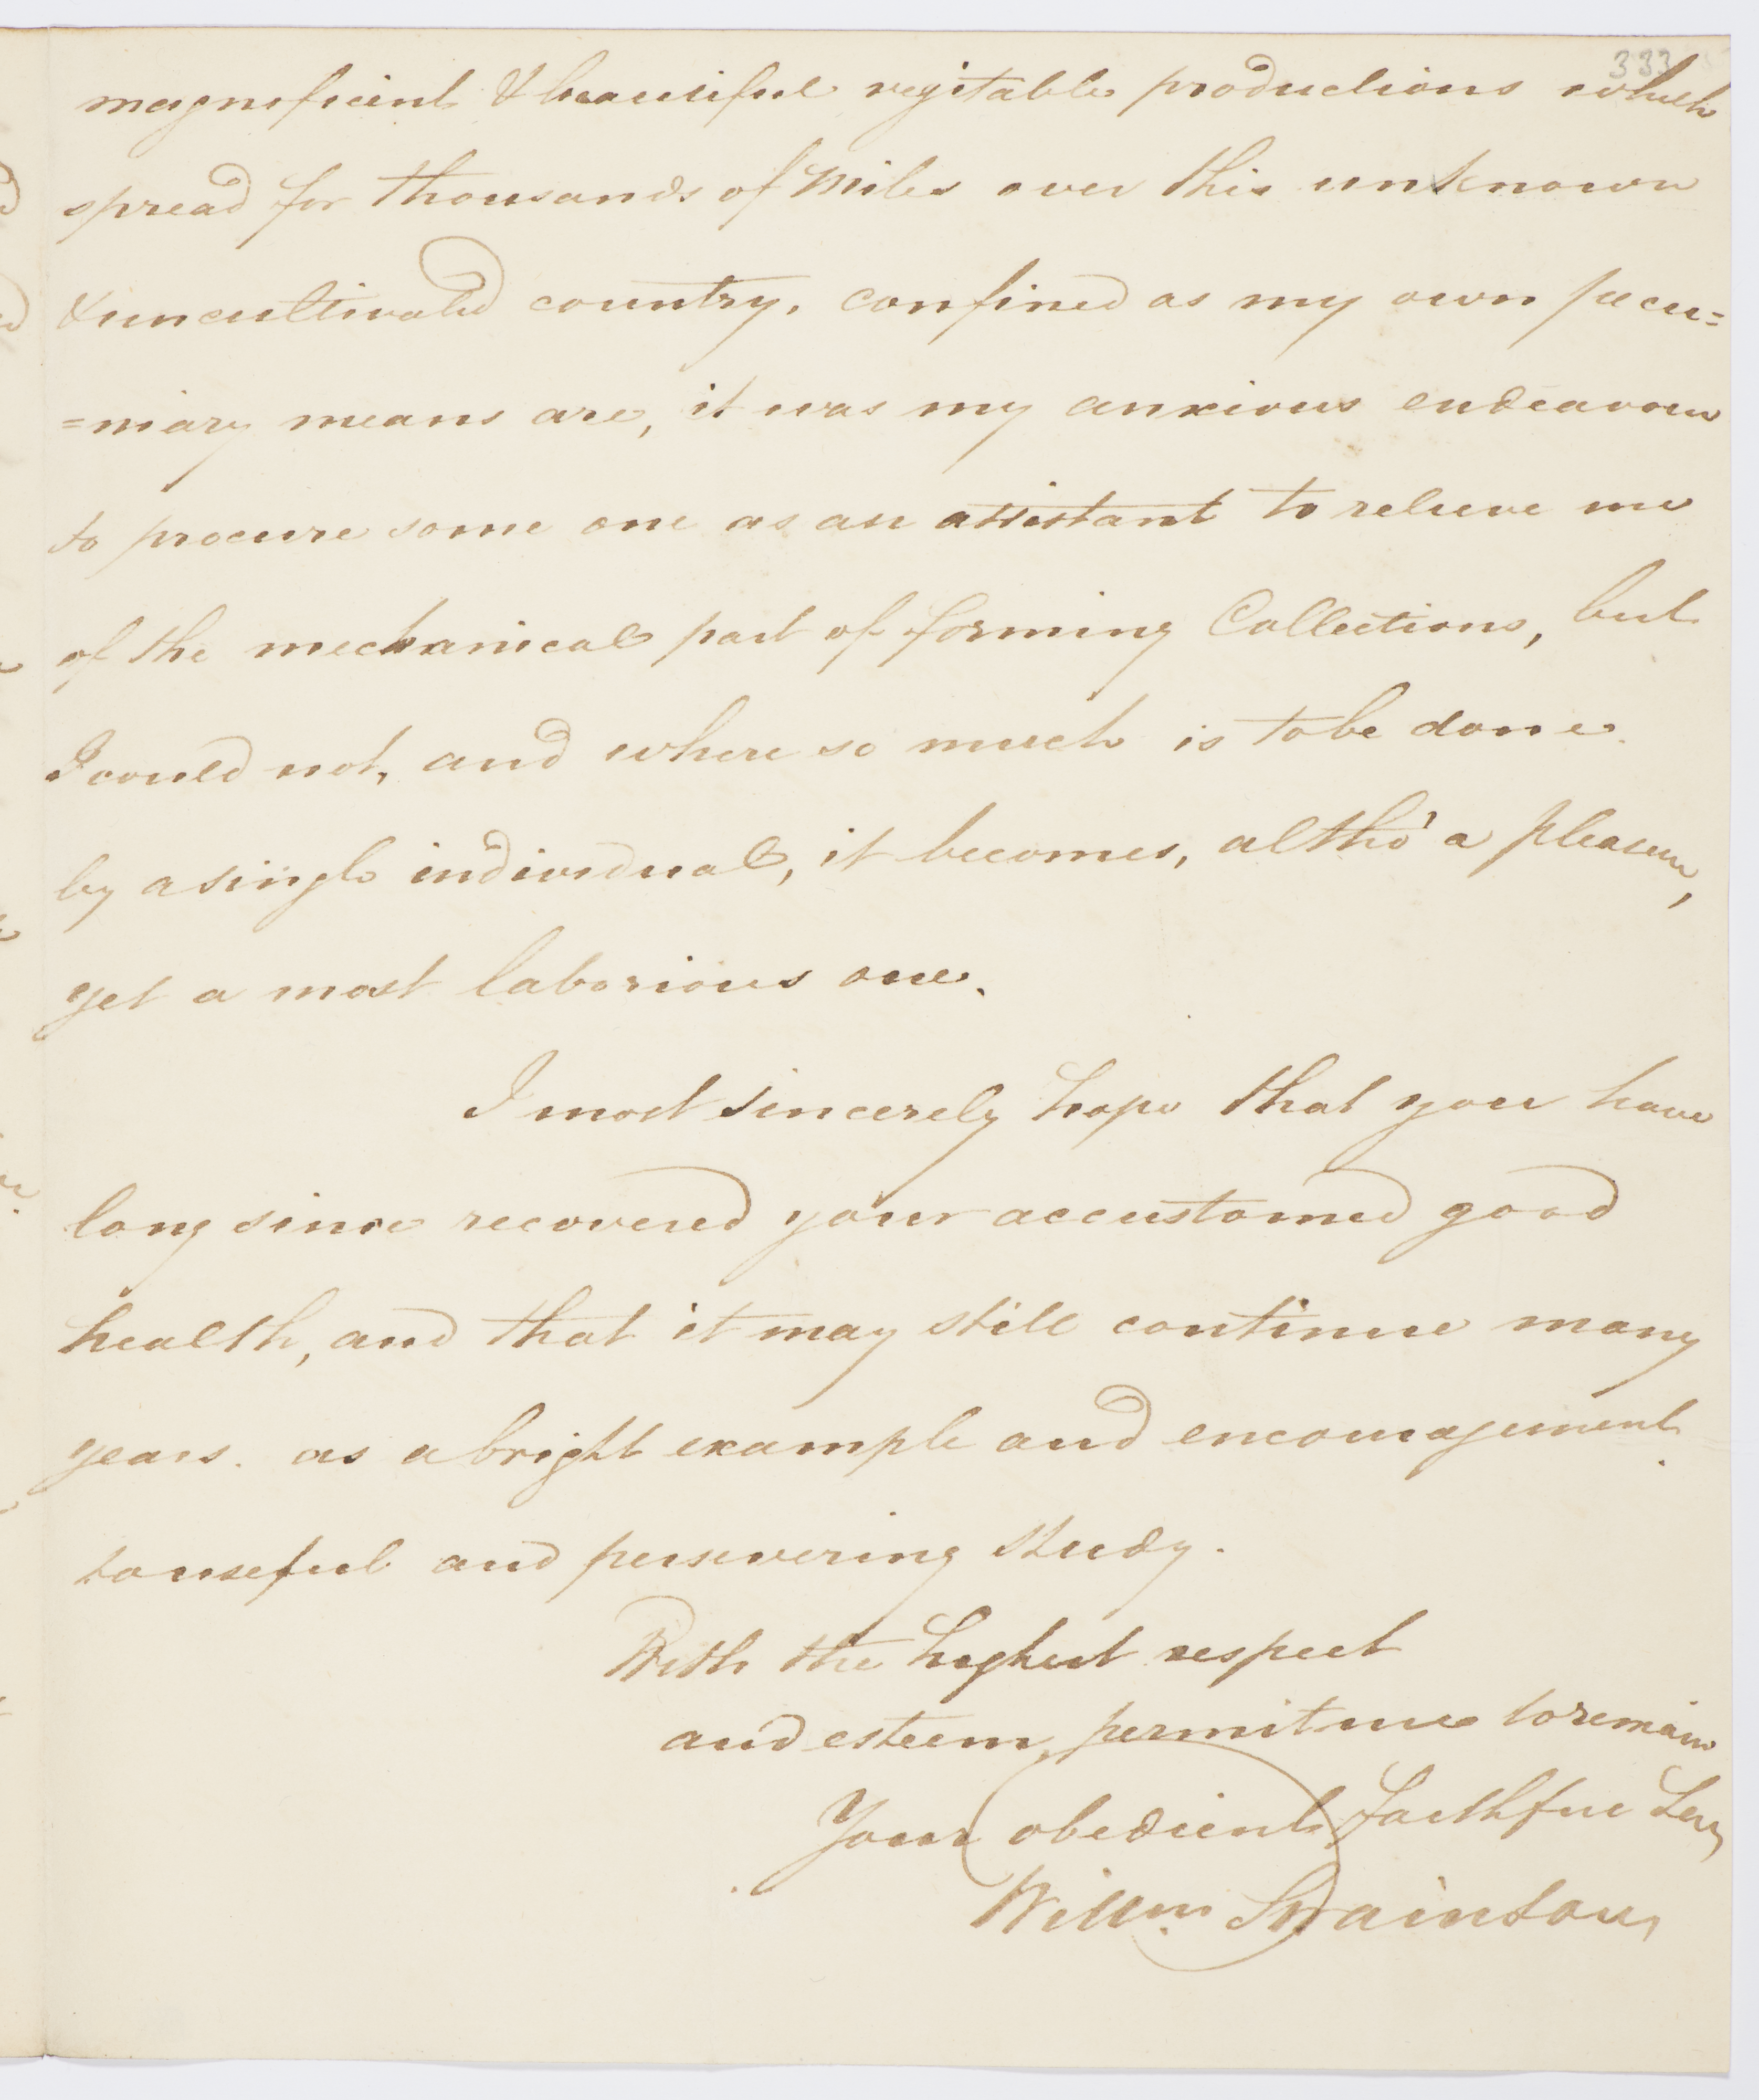 333
magnificent & beautiful vegitable productions which
spread for thousands of Miles over this unknown
& uncultivated country, confined as my own pecu=
=niary means are, it was my anxious endeavour
to procure some one as an assistant to relieve me
of the mechanical part of forming Collections, but
I could not, and where so much is to be done
by a single individual, it becomes, altho' a pleasure,
yet a most laborious one.
I most sincerely hope that you have
long since recovered your accustomed good
health, and that it may still continue many
years. as a bright example and encouragement
to useful and persevering study.
With the highest respect
and esteem, permit me to remain
Your obedient faithful Ser
Willm Swainson